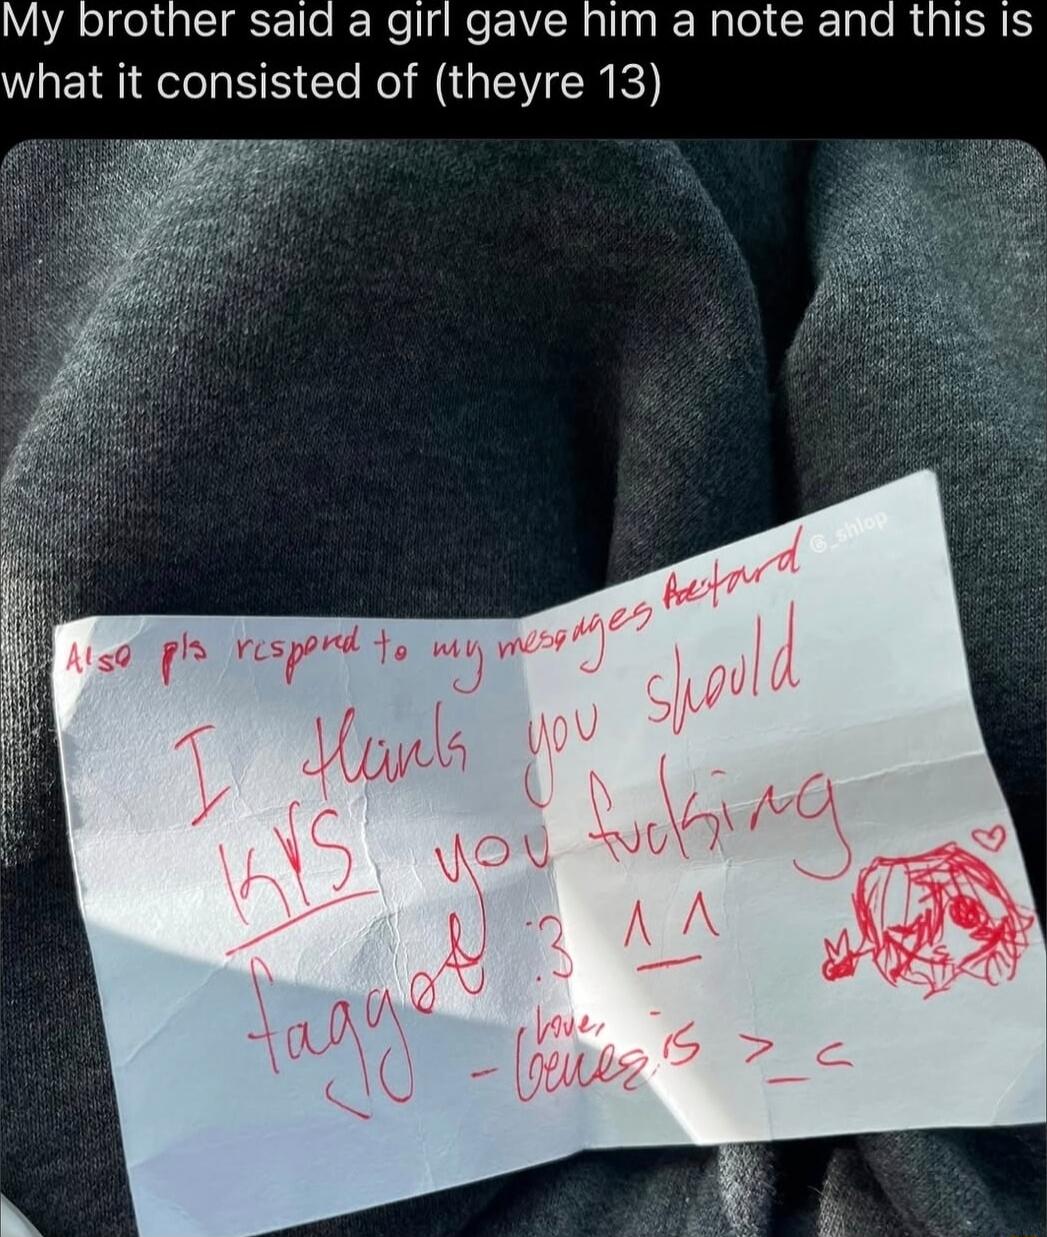 My brother said a girl gave him a note and this is
what it consisted of (theyre 13)
@_shlop
Also pls respond to my messages bastard
I think you should
KYS you fucking
faggot :3 ^_^
love,
-Genesis >_<